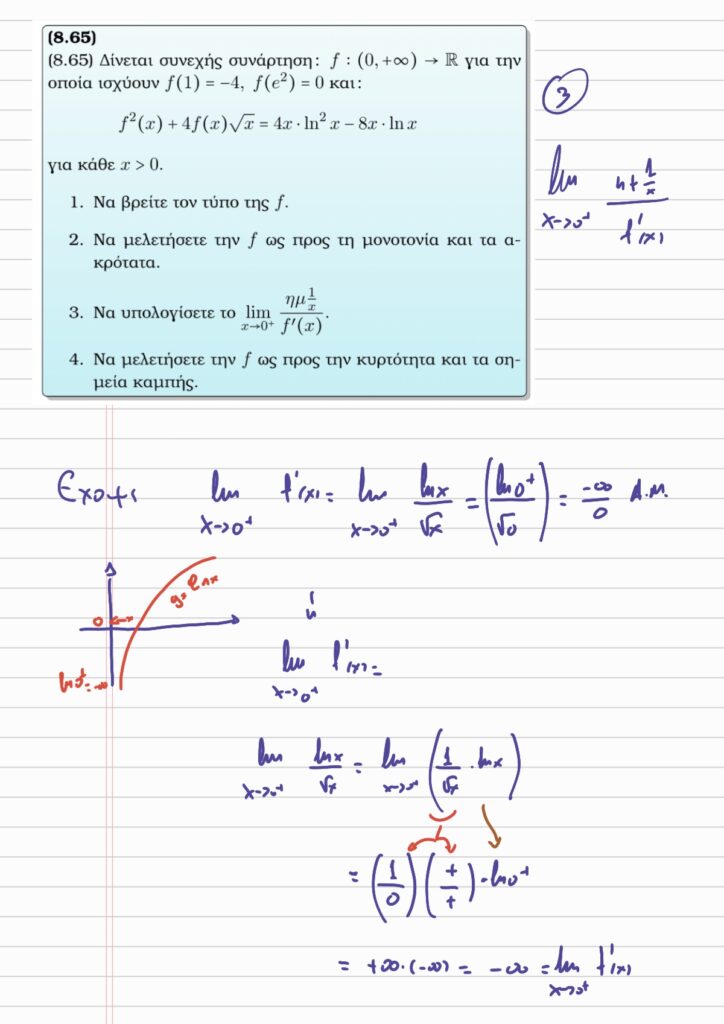 (8.65)
(8.65) Δίνεται συνεχής συνάρτηση: f : (0, +∞) → ℝ για την
οποία ισχύουν f(1) = −4, f(e²) = 0 και:
f²(x) + 4f(x)√x = 4x · ln² x − 8x · ln x
για κάθε x > 0.
1. Να βρείτε τον τύπο της f.
2. Να μελετήσετε την f ως προς τη μονοτονία και τα α-
κρότατα.
3. Να υπολογίσετε το lim x→0⁺ ημ(1/x) / f′(x).
4. Να μελετήσετε την f ως προς την κυρτότητα και τα ση-
μεία καμπής.
3
lim x→0⁺ ημ(1/x) / f'(x)
Εχομε lim x→0⁺ f'(x) = lim x→0⁺ lnx/√x = (ln0⁺/√0) = −∞/0 Δ.Μ.
0
y=lnx
ln0⁺=−∞
ή
lim x→0⁺ f'(x) =
lim x→0⁺ lnx/√x = lim x→0⁺ (1/√x · lnx)
= (1/0)(+/+) · ln0⁺
= +∞·(−∞) = −∞ = lim x→0⁺ f'(x)